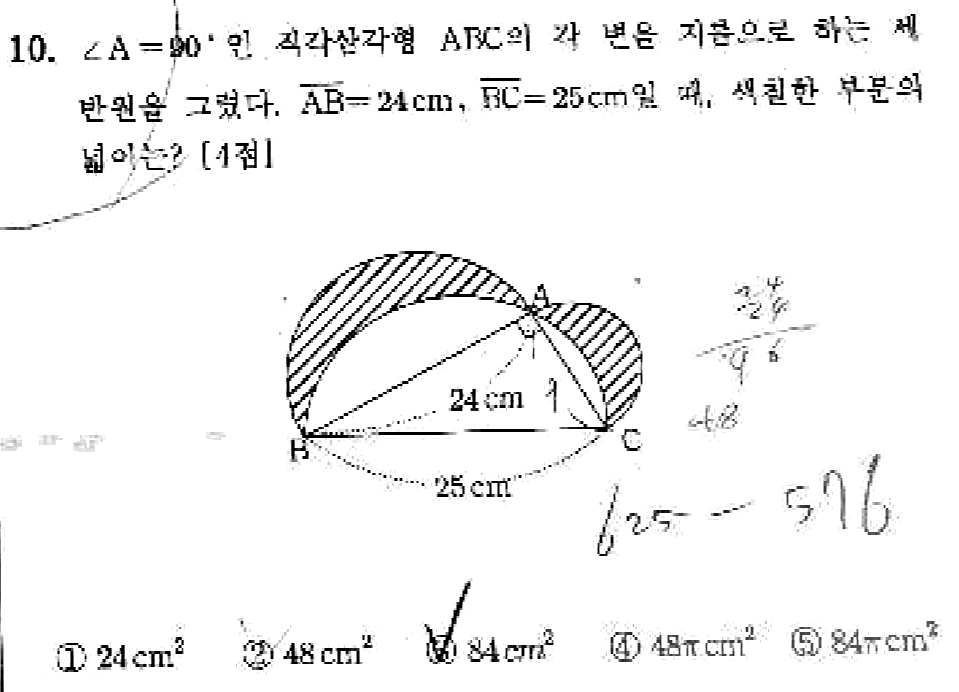 10. ∠A=90°인 직각삼각형 ABC의 각 변을 지름으로 하는 세
반원을 그렸다. AB=24cm, BC=25cm일 때, 색칠한 부분의
넓이는? [4점]
A
24cm
B
C
25cm
24
24
96
48
625 - 576
① 24cm² ② 48cm² ③ 84cm² ④ 48πcm² ⑤ 84πcm²